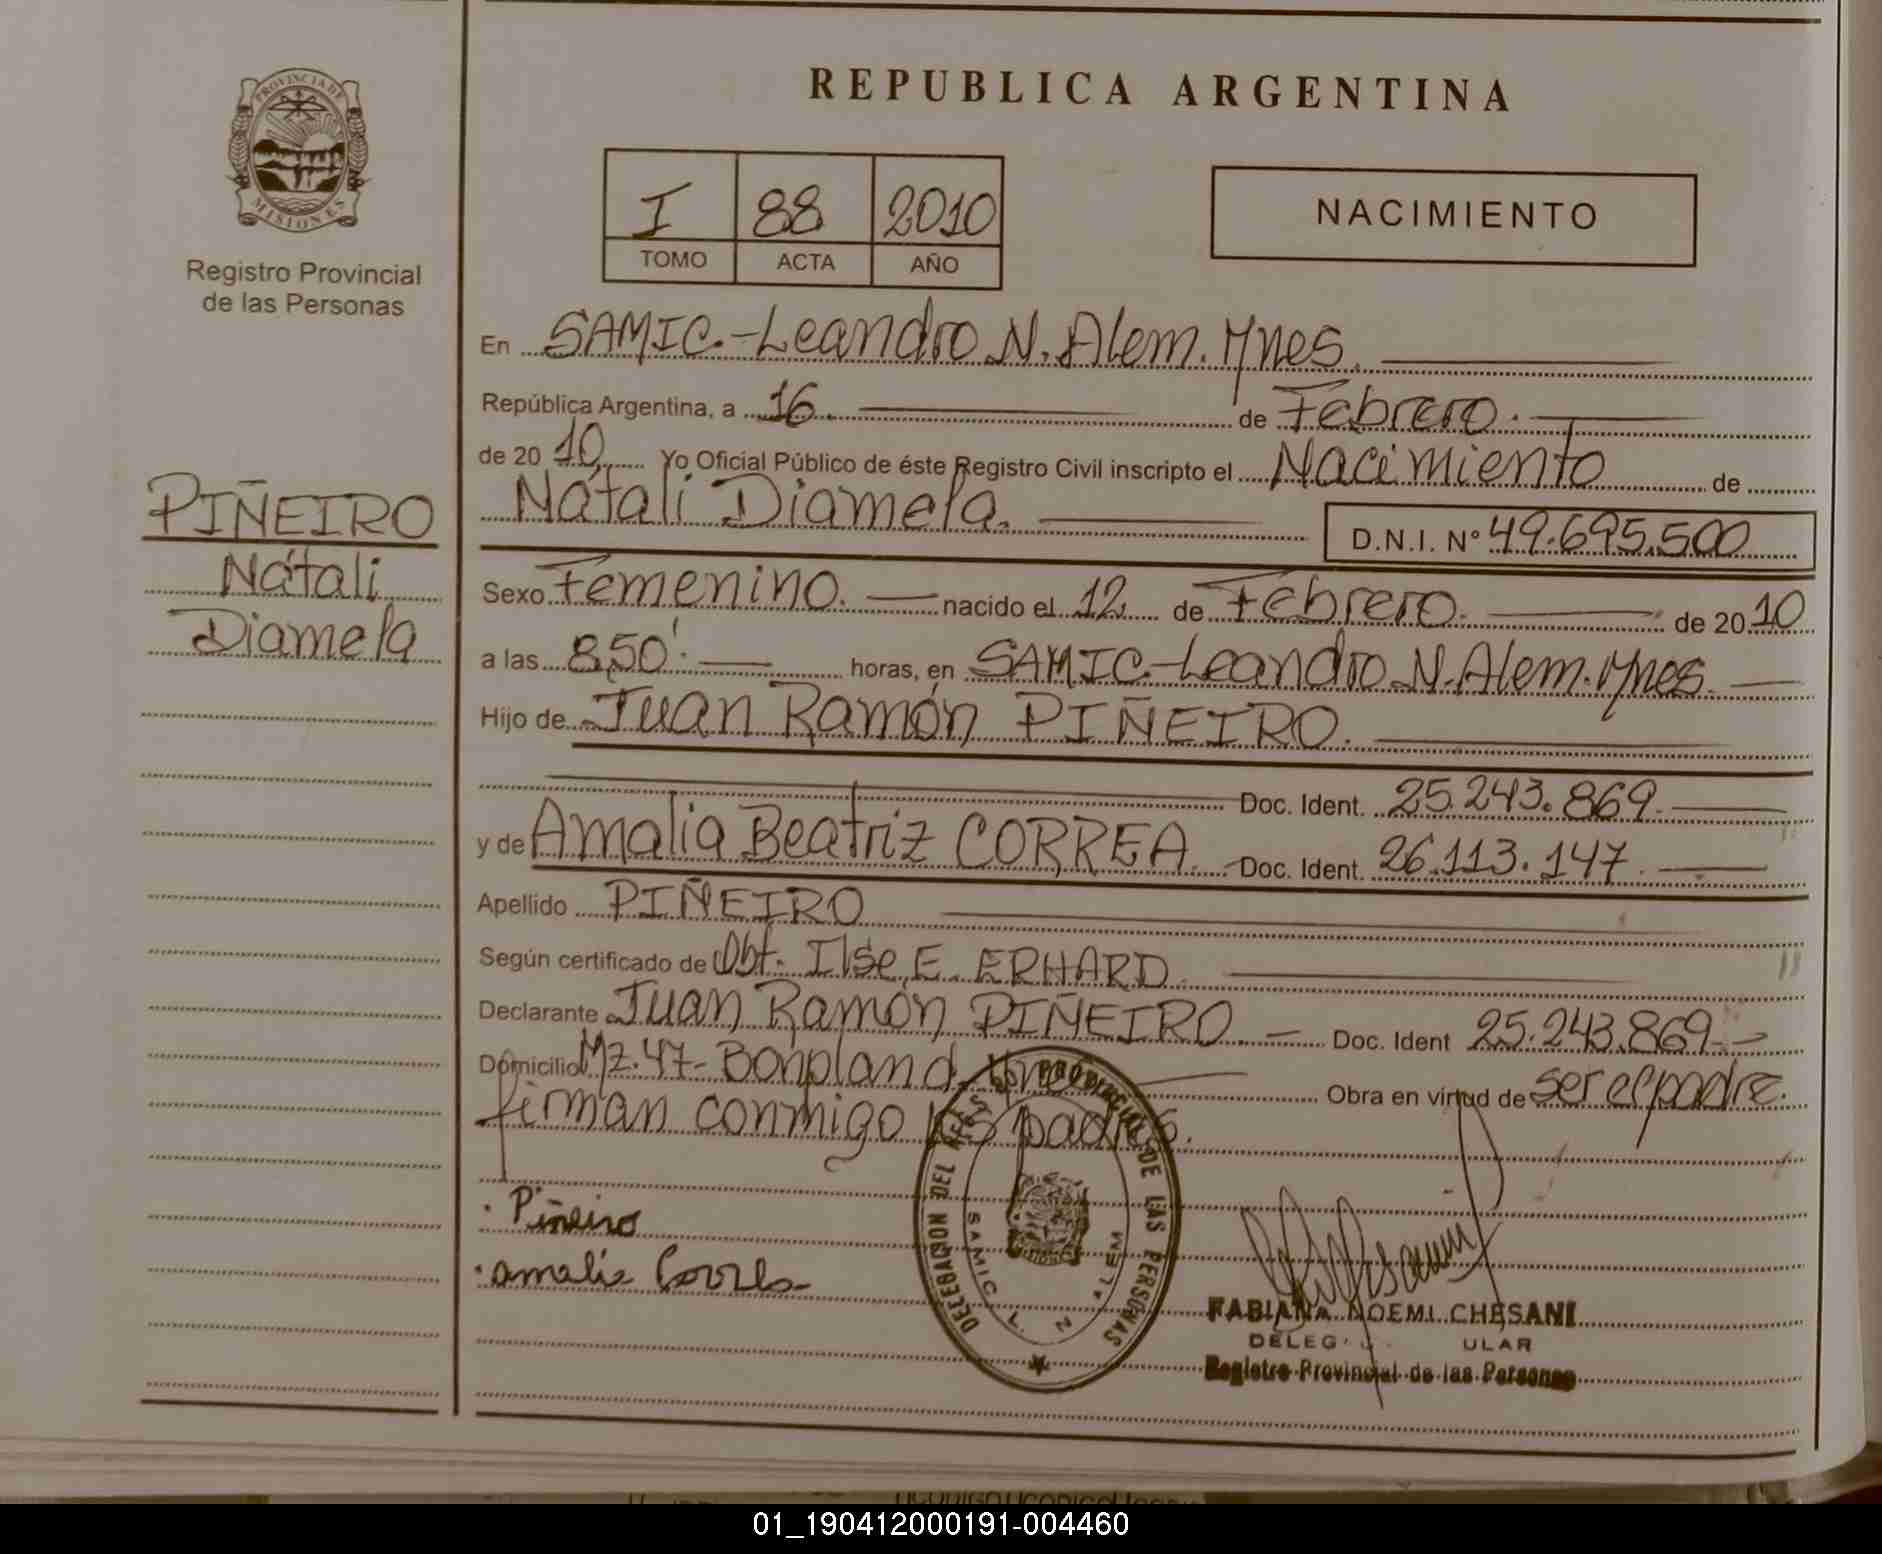 PROVINCIA DE
MISIONES
Registro Provincial
de las Personas
PIÑEIRO
Nátali
Diamela
REPUBLICA ARGENTINA
I 88 2010
TOMO ACTA AÑO
NACIMIENTO
En SAMIC.-Leandro N. Alem. Mnes.
República Argentina, a 16. de Febrero.
de 20 10. Yo Oficial Público de éste Registro Civil inscripto el Nacimiento de
Nátali Diamela.
D.N.I. N° 49.695.500
Sexo Femenino. nacido el 12. de Febrero. de 20 10
a las 8,50'. horas, en SAMIC.-Leandro N. Alem. Mnes.
Hijo de Juan Ramón PIÑEIRO.
Doc. Ident. 25.243.869.
y de Amalia Beatriz CORREA. Doc. Ident. 26.113.147.
Apellido PIÑEIRO
Según certificado de Obt. Ilse E. ERHARD.
Declarante Juan Ramón PIÑEIRO. Doc. Ident 25.243.869.
Domicilio Mz. 47- Bonpland. Mnes. Obra en virtud de ser el padre.
firman conmigo los padres.
Piñeiro
amalia Correa
DELEGACION DEL REGISTRO PROVINCIAL DE LAS PERSONAS
SAMIC L. N. ALEM
FABIANA NOEMI CHESANI
DELEG ULAR
Registro Provincial de las Personas
01_190412000191-004460